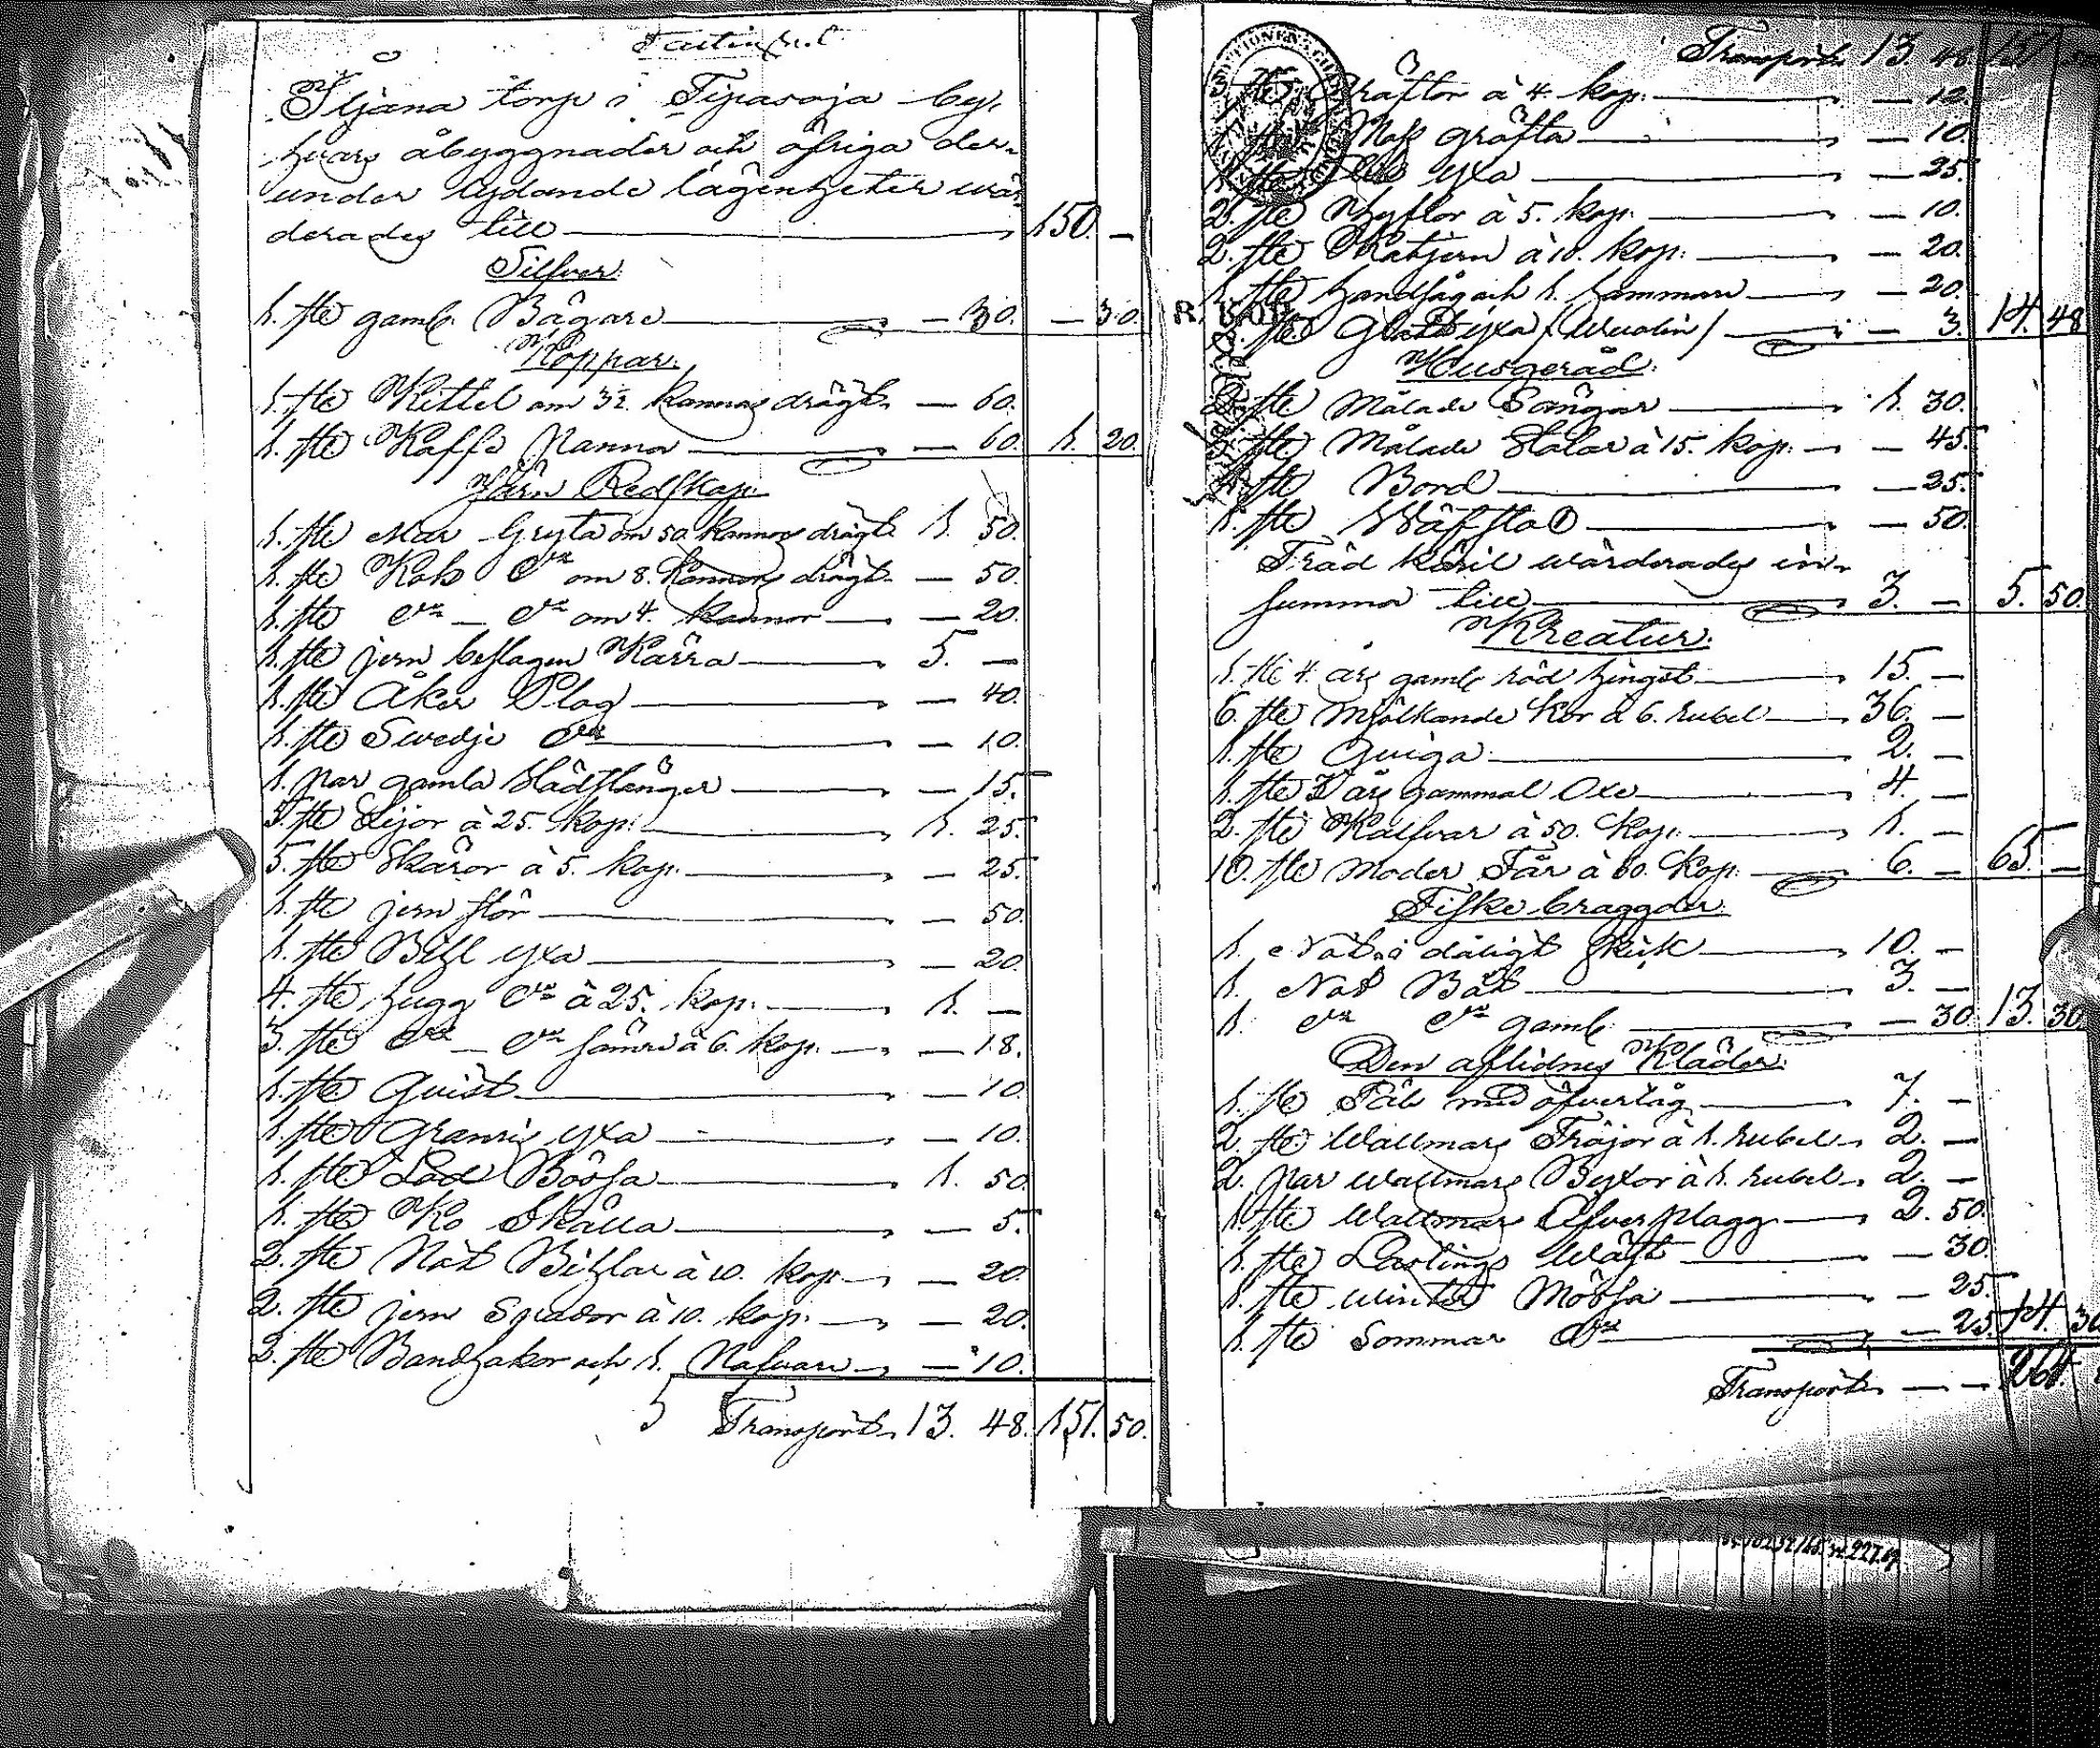 Iljana torp i Tipasoja by,
hvars åbyggnader och öfriga der-
under lydande lägenheter wär-
derades till 150. —
Silfver.
1. ste gaml. Bägare — 30. — 30.
Koppar.
1. ste Kittel om 3½ kannas drägt. — 60.
1. ste Kaffe Panna — 60. 1. 20.
Järn Redskap.
1. ste Mur Gryta om 50 kannors drägt. 1. 50.
1. ste Kok d:o om 8. kannors drägt. — 50.
1. ste d:o — d:o om 4. kannor — 20.
1. ste jern beslagen Kärra 5. —
1. ste Åker Plog — 40.
1. ste Svedje d:o — 10.
1. par gamla Slädstänger — 15.
5. ste Lijor à 25. kop. 1. 25.
5. ste Skäror à 5. kop. — 25.
1. ste jern stör — 50.
1. ste Bihl yxa — 20.
4. ste hugg d:o à 25. kop. 1. —
3. ste d:o — d:o sämre à 6. kop. — 18.
1. ste Quist — 10.
1. ste Granris yxa — 10.
1. ste Lod Bössa 1. 50.
1. ste Ko Skälla — 5.
2. ste Not Bihlar à 10. kop. — 20.
2. ste jern Spador à 10. kop. — 20.
2. ste Bandhakor och 1. Nafvare — 10.
Transport. 13. 48. 151. 50.
Transport. 13. 48. 151. 50
Gräftor à 4. kop. — 12.
gräfta — 10.
yxa — 25.
2. ste Hyflor à 5. kop. — 10.
2. ste à 10. kop. — 20.
1. ste handsåg och 1. hammare — 20.
yxa — 3. 14. 48
Husgeråd.
2. ste Målade Sängar 1. 30.
3. ste Målade Stolar à 15. kop. — 45.
1. ste Bord — 25.
1. ste Wäfstol — 50.
Träd käril wärderades in
summa till 3. — 5. 50.
Kreatur.
1. ste 4. års gaml. röd hingst 15. —
6. ste Mjölkande Kor à 6. rubel 36. —
1. ste Quiga 2. —
1. ste 3 års gammal Oxe 4. —
2. ste Kalfvar à 50. kop. 1. —
10. ste Moder Får à 60. kop. 6. — 65. —
Fiske braggder.
1. Not, i dåligt skick 10. —
1. Not Båt 3. —
1. d:o d:o gaml. — 30. 13. 30.
Den aflidnes Kläder.
1. ste Päls med öfvertåg 7. —
2. ste Wallmars Tröjor à 1. rubel. 2. —
2. par Wallmars Byxor à 1. rubel. 2. —
1. ste Wallmars Öfverplagg 2. 50.
1. ste Lastings Wäst — 30.
1. ste Winter Mössa — 25.
1. ste Sommar d:o — 25. 14. 30
Transport. — — 264.